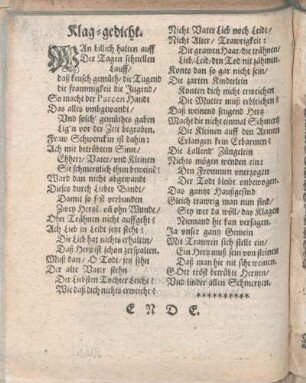 Klag-gedicht.
MAn billich halten auff
Der Tagen schnellen
Lauff/
daß keusch gemüth/ die Tugend
die frommigkeit die Jugend/
So macht der Parcen Handt
Das alles umbgwandt/
Und solch' gemüthes gaben
Lig'n vor der Zeit begraben.
Fraw Schwenckin ist dahin:
Ach mit betrübtem Sinn/
Ehherr/ Vater/ und Kleinen
Sie schmertzlich thun beweinē
Ward dan nicht abgewandt
Dieses durch Liebes Bandt/
Damit so fest verbunden
Zwey Hertzē/ mit jhrn Wundē/
Ohn Trähnen nicht auffgeht?
Ach Lieb in Leidt jetzt steht!
Die Lieb hat nichts erhalten/
Daß Hertz ist schon zerspalten.
Must dan/ O Todt/ jetz sehn
Der alte Vater stehn
Der Liebsten Tochter Leiche?
Wie daß dich nichts erweiche?
Nicht Vater Lieb noch Leidt/
Nicht Alter/ Trawrigkeit:
Die grawen Haar/ die trähnen/
Lieb/ Leid/ den Tod nit zähmen.
Konts dan so gar nicht sein/
Die zarten Kinderlein
Konten dich nicht erweichen
Die Mutter muß erbleichen?
Daß weinend seugend Hertz
Macht dir nicht einmal Schmertz
Die Kleinen auff den Armen
Erlangen kein Erbarmen?
Die Lallend' Züngelein
Nichts mögen wenden ein?
Den Frommen unerzogen
Der Todt bleibt unbewogen.
Das gantze Haußgesind
Gleich trawrig man nun find/
Sey wer da wöll/ das Klagen
Niemand hie kan versagen.
Ja unser gantz Gemein
Mit Trawren sich stelle ein/
Ein Hertz muß sein von steinen
Daß man hie nit siht weinen.
GOtt tröst betrübte Hertzen/
Und linder allen Schmertzen.
***********
ENDE.